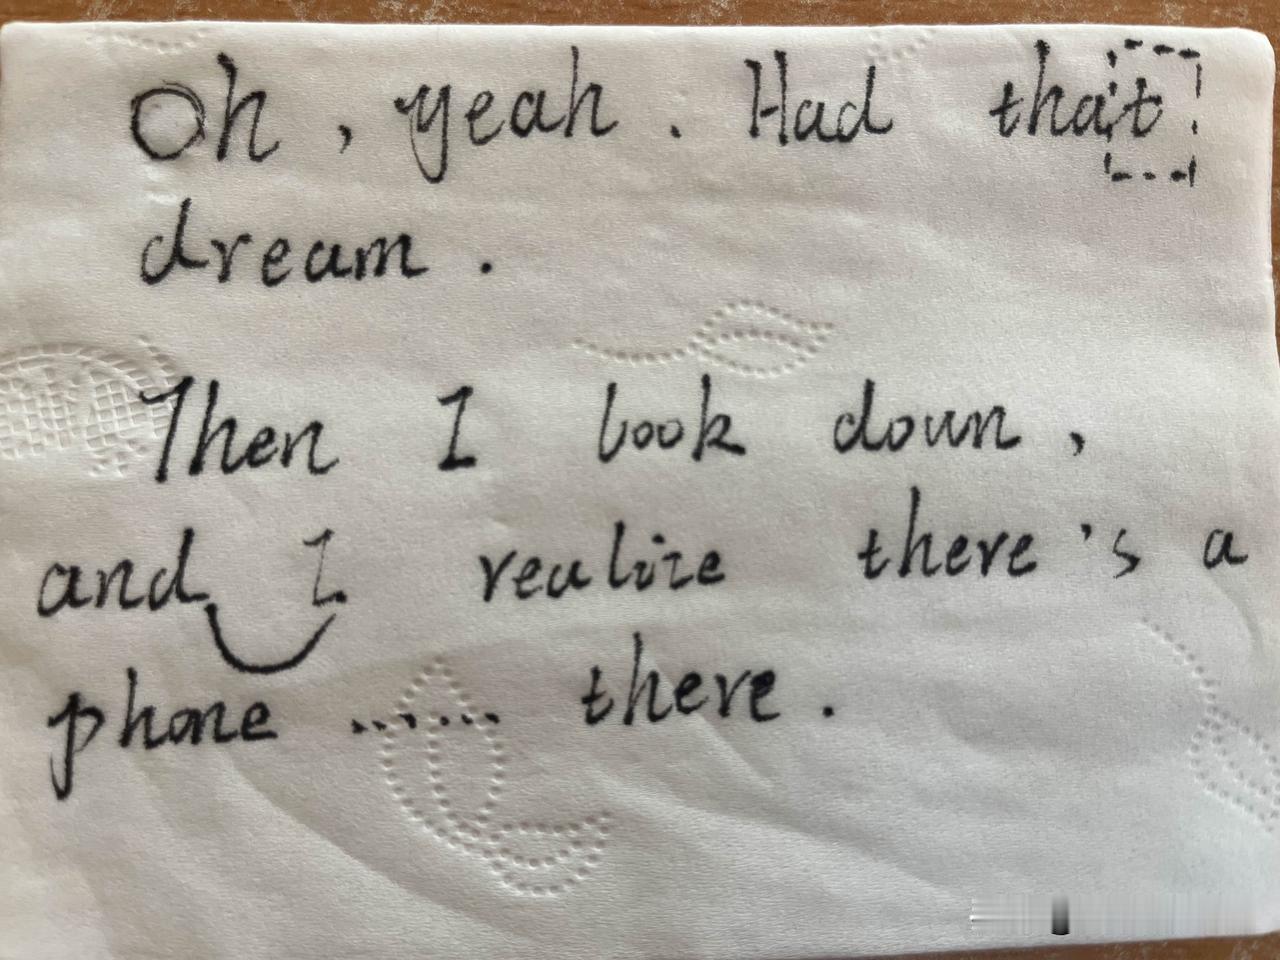 Oh, yeah. Had that
dream.
Then I look down,
and I realize there's a
phone ...... there.